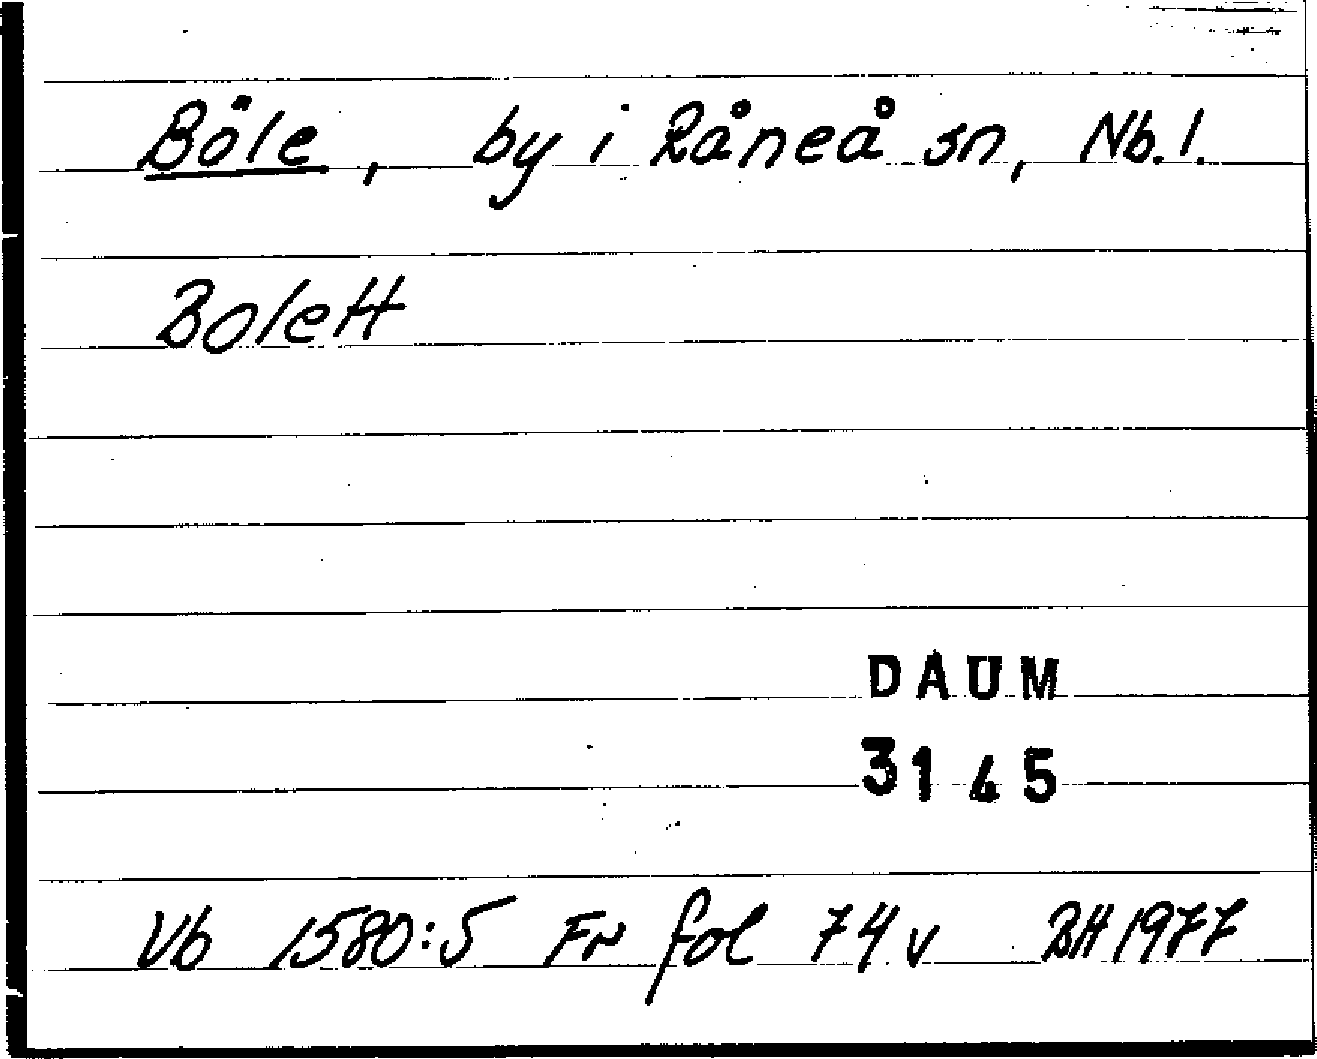 Böle, by i Råneå sn, Nb.l.
Bolett
DAUM
3145
Vb 1580:5 Fr fol 74 v BH 1977